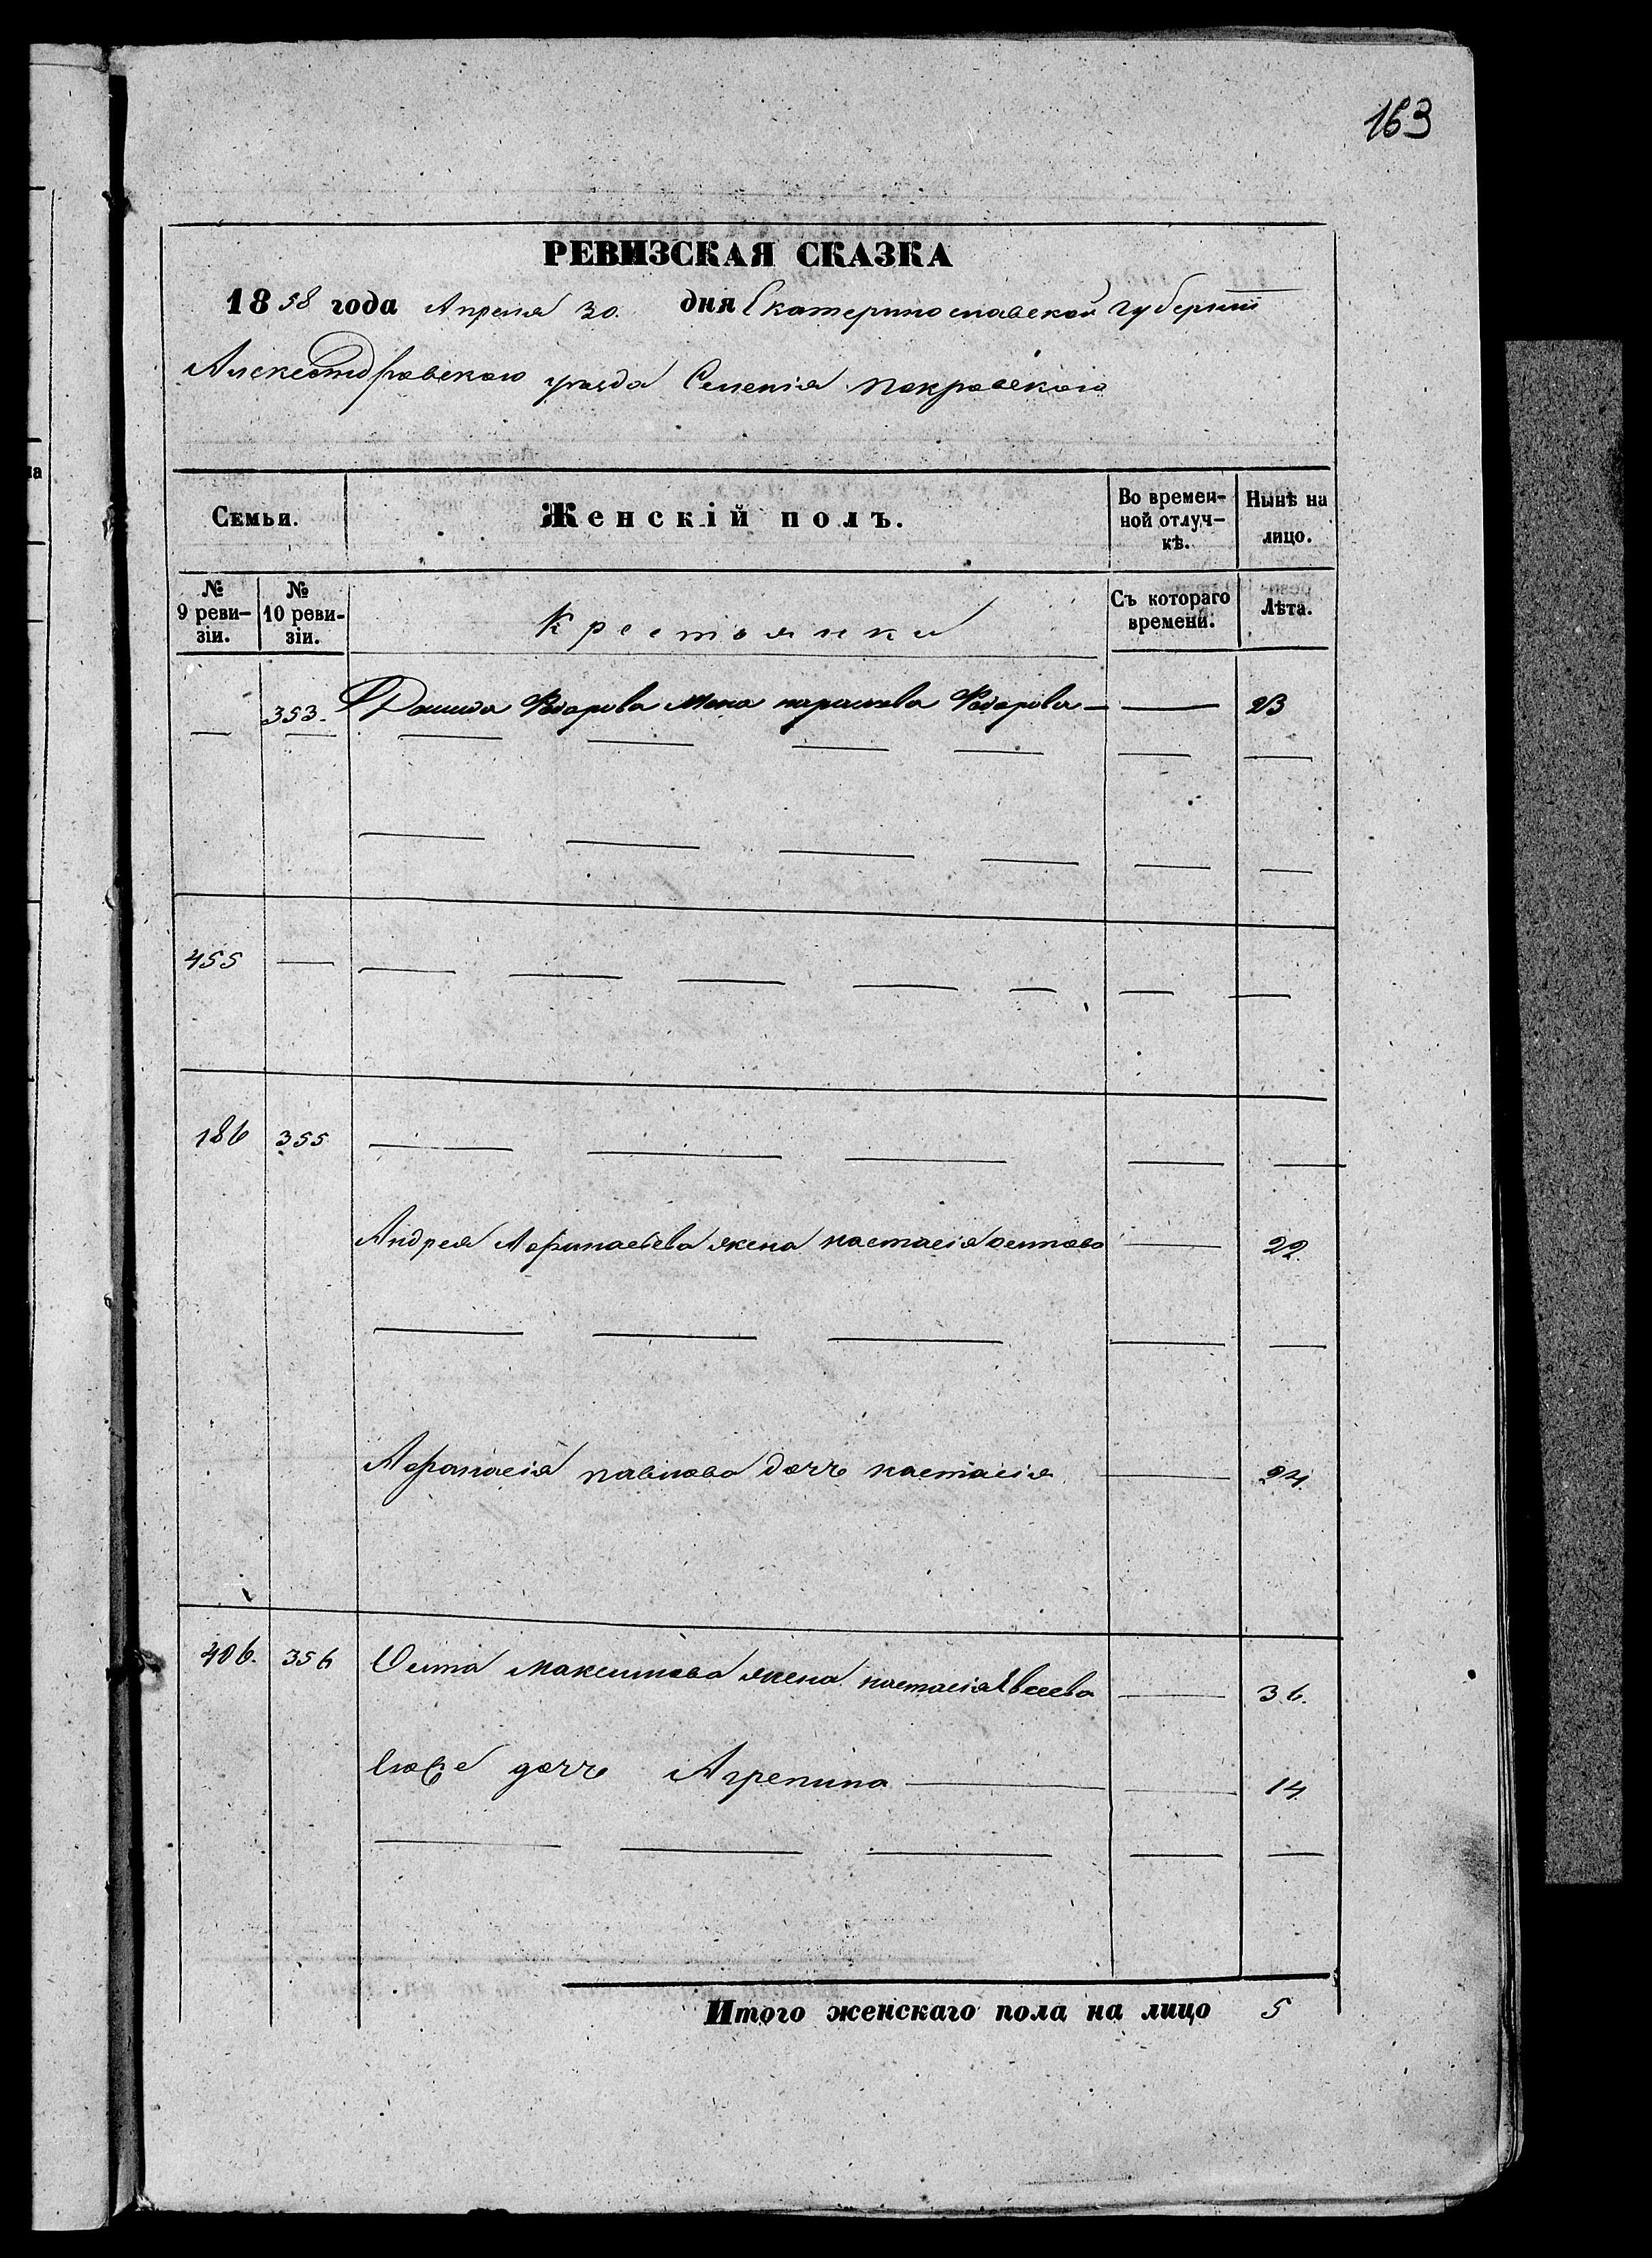 163
РЕВИЗСКАЯ СКАЗКА
1858 года Апреля 30. дня Екатеринославской губернии
Александровского уезда Селения Покровского
Семьи. Женскій полъ. Во времен-ной отлуч-кѣ. Нынѣ на лицо.
№ 9 реви-зіи. № 10 реви-зіи. Крестьянки Съ котораго времени. Лѣта.
353. Данила Федорова жена параскева Федорова — — 23
455 —
186 355
Андрея Афанасьева жена настасія осипова — 22.
Афанасія павлова дочь настасія — 24.
406. 356 Осипа Максимова жена настасія Евсеева — 36.
Его же дочь Агрепина — — 14
Итого женскаго пола на лицо 5